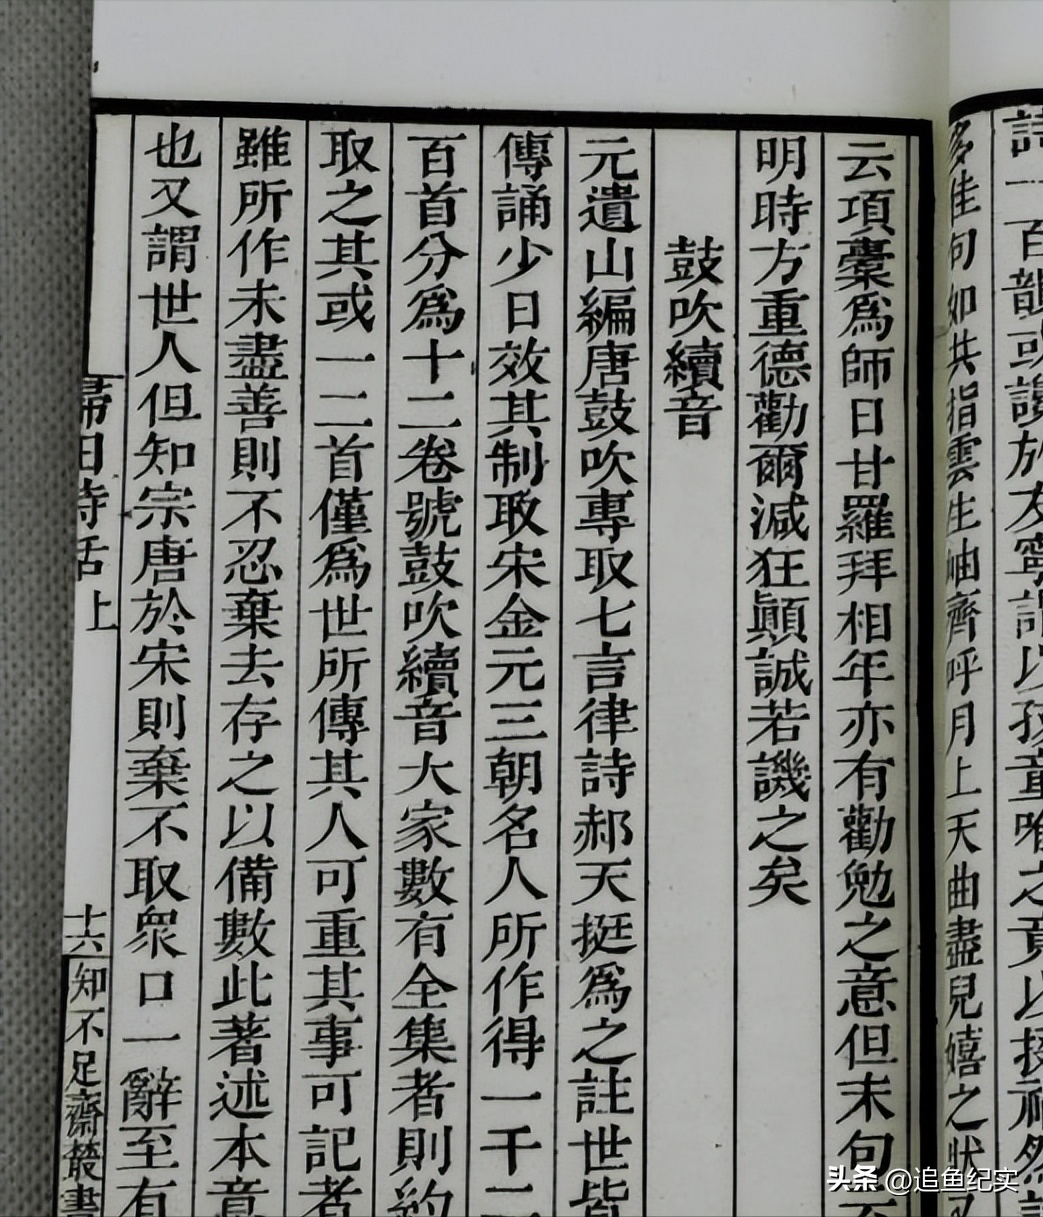 詩一百韻或謗於友寧謂以孩童唯之竟以
多佳句如共指雲生岫齊呼月上天曲盡兒嬉之狀
云項橐爲師日甘羅拜相年亦有勸勉之意但末句
明時方重德勸爾減狂顛誠若譏之矣
鼓吹續音
元遺山編唐鼓吹專取七言律詩郝天挺爲之註世皆
傳誦少日效其制取宋金元三朝名人所作得一千二
百首分爲十二卷號鼓吹續音大家數有全集者則約
取之其或一二首僅爲世所傳其人可重其事可記者
雖所作未盡善則不忍棄去存之以備數此著述本意
也又謂世人但知宗唐於宋則棄不取衆口一辭至有
歸田詩話上
十六
知不足齋叢書
头条 @追鱼纪实